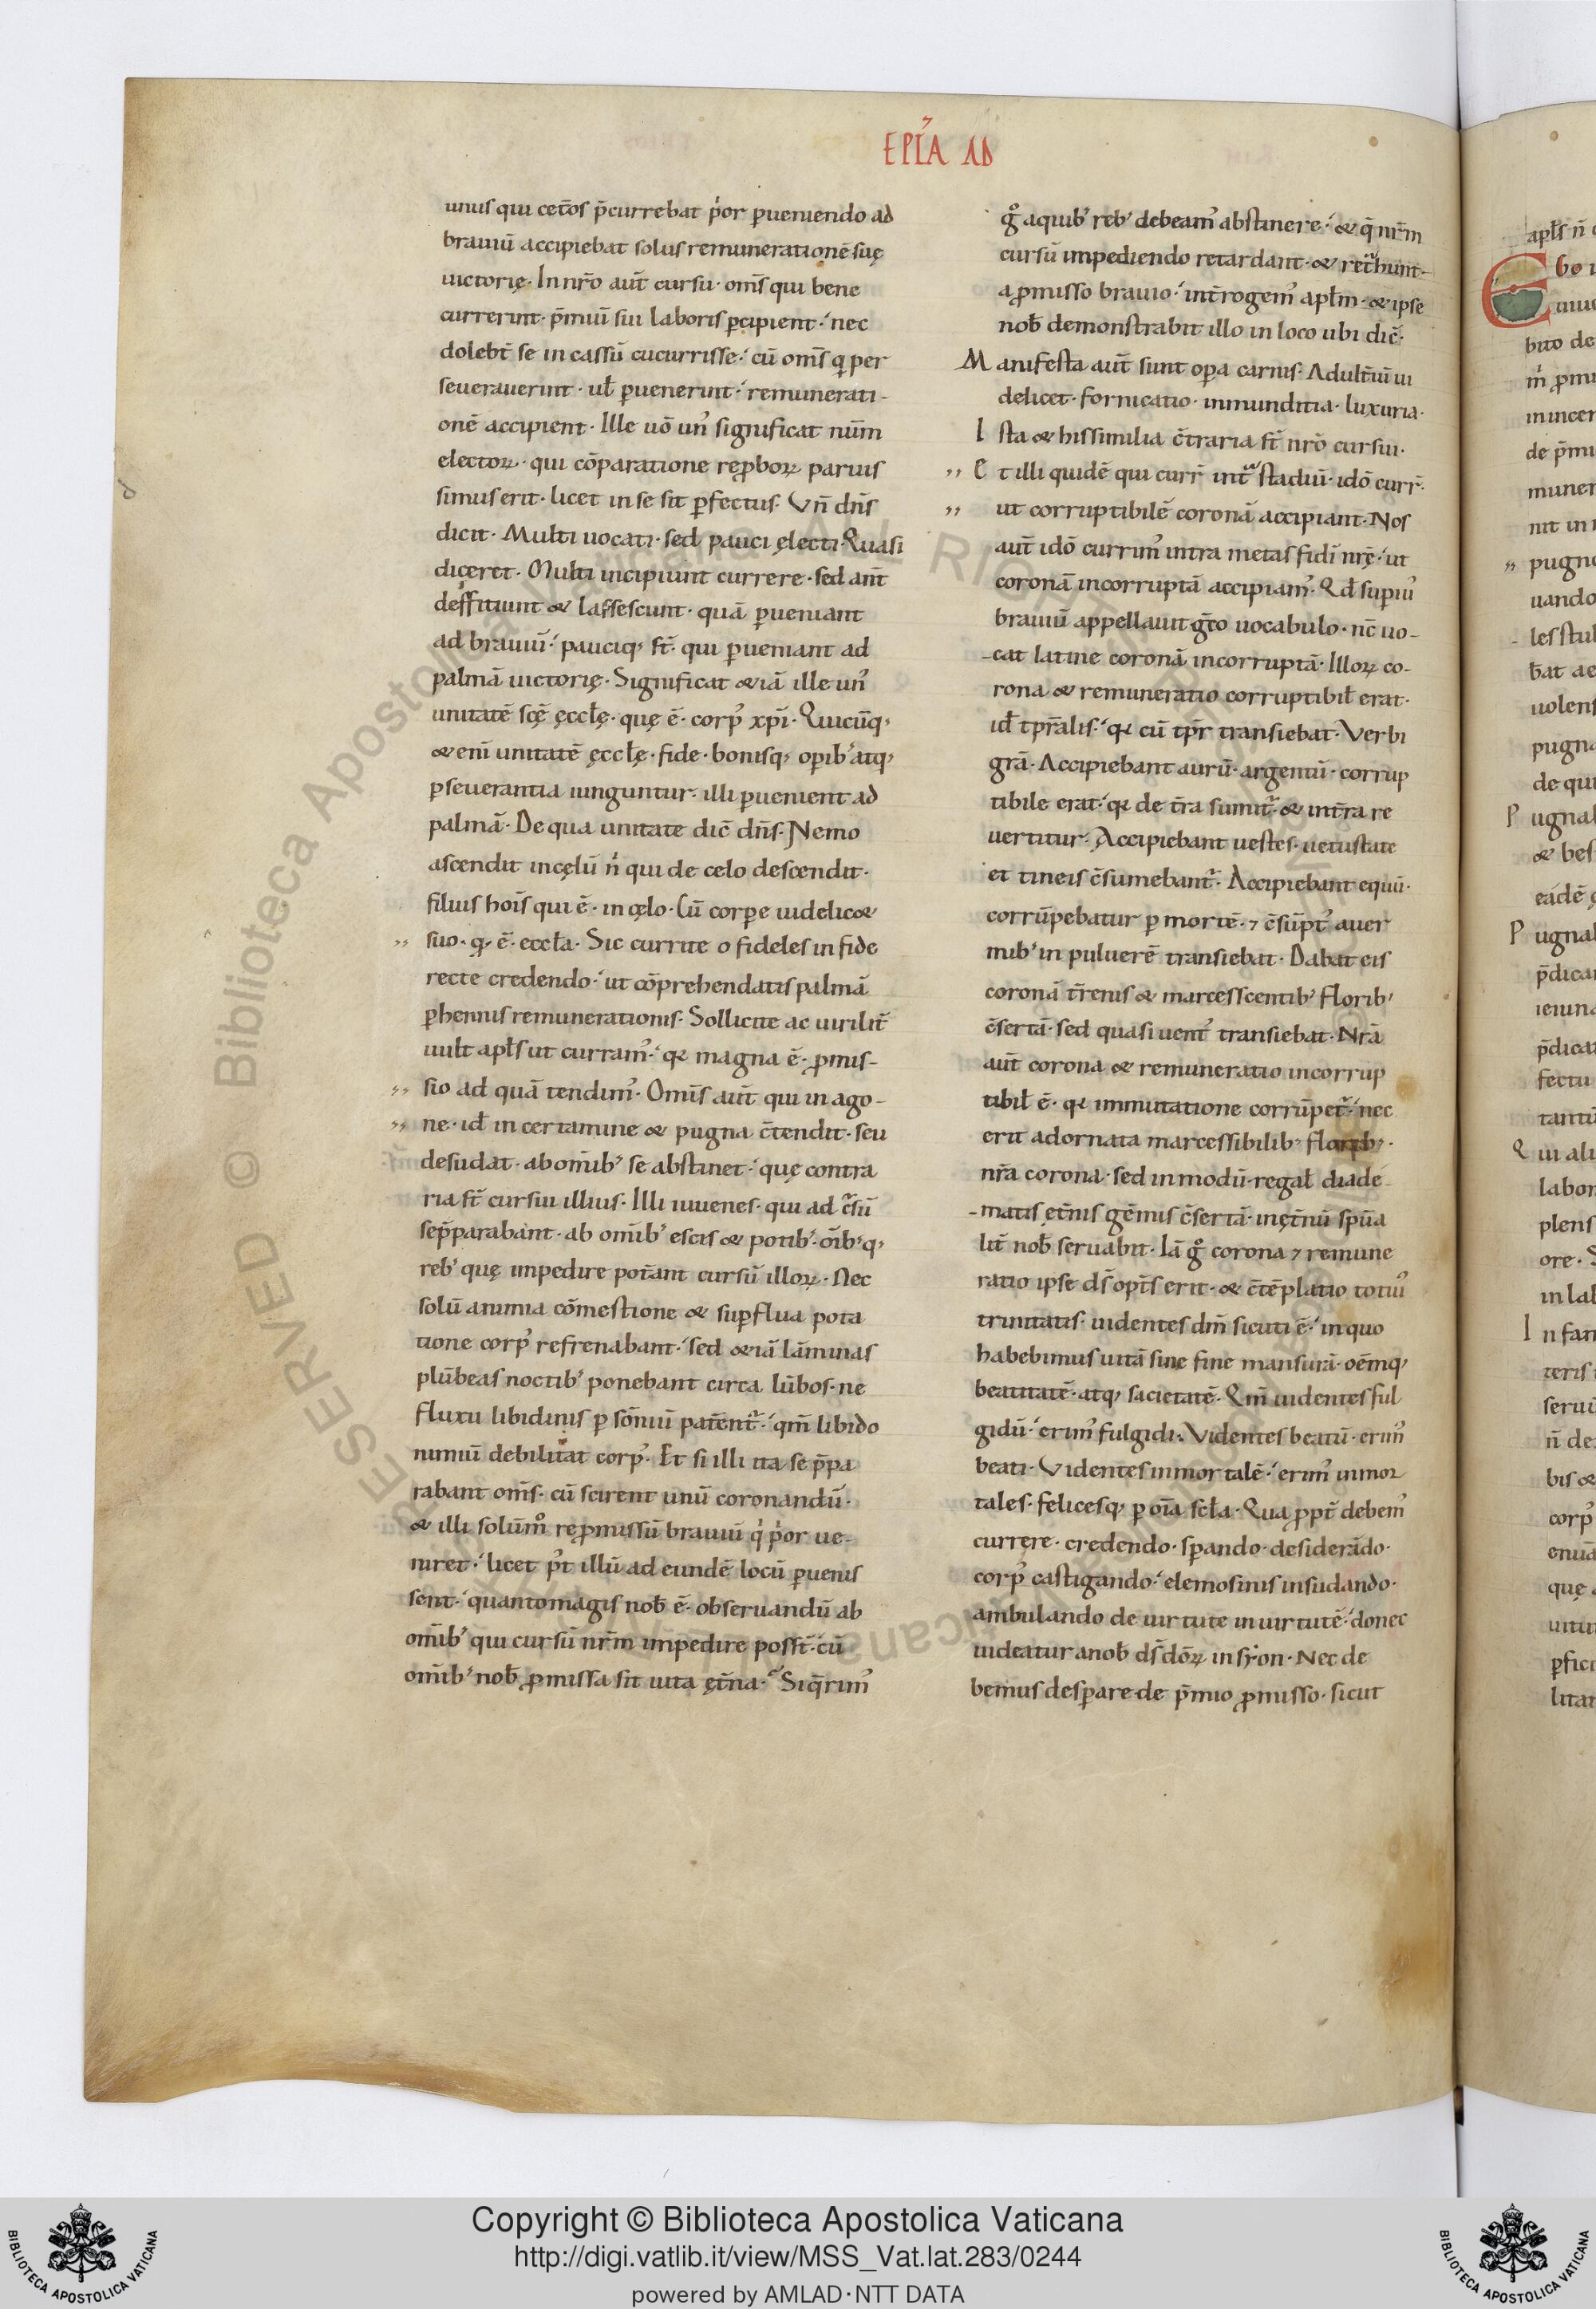 EPĪA AD
unus qui cet̄os p̄currebat p̍or ꝑueniendo ad
brauiū accipiebat solus remunerationē suę
uictorię. In nr̄o aut̄ cursu. om̄s qui bene
currerint. p̄miū sui laboris ꝑcipient. nec
dolebt̄ se in cassū cucurrisse. cū om̄s q̍ per
seuerauerint. ul̄ ꝑuenerint. remunerati-
onē accipient. Ille uō un᾽ significat num̄
electoꝝ. qui cōparatione reꝓboꝝ paruis
simus erit. licet in se sit ꝑfectus. Vn̄ dn̄s
dicit. Multi uocati. sed pauci ęlecti. Quasi
diceret. Multi incipiunt currere. sed ant̄
deffitiunt & lassescunt. quā ꝑueniant
ad brauiū. pauciq; st̄. qui ꝑueniant ad
palmā uictorię. Significat &iā ille un᾽
unitatē scę̄ ęccłę. quę ē. corp᾽ xp̄i. Quicūq;
&enī unitatē ęccłę. fide. bonisq; oꝑib᾽ atq;
ꝑseuerantia iunguntur. illi ꝑuenient ad
palmā. De qua unitate dic̄ dn̄s. Nemo
ascendit in cęlū n̍ qui de celo descendit.
filius hoīs qui ē. in cęlo. Cū corꝑe uidelic&
suo. q̨ ē. eccła. Sic currite o fideles in fide
recte credendo. ut cōprehendatis palmā
ꝑhennis remunerationis. Sollicite ac uirilit̄
uult apłs ut curram᾽. qꝛ magna ē. ꝓmis-
sio ad quā tendim᾽. Omīs aut̄ qui in ago-
ne. id̄ in certamine & pugna c̄tendit. seu
desudat. ab om̄ib᾽ se abstinet. quę contra
ria st̄ cursui illius. Illi iuuenes. qui ad c̄sū
sep̄parabant. ab om̄ib᾽ escis & potib᾽. oīb᾽q;
reb᾽ quę impedire pot̄ant cursū illoꝝ. Nec
solū animia cōmestione & suꝑflua pota
tione corp᾽ refrenabant. sed &iā lāminas
plūbeas noctib᾽ ponebant circa lūbos. ne
fluxu libidinis ꝑ sōniū pat̄ent᷑. qm̄ libido
nimiū debilitat corp᾽. Et si illi ita se p̄pa
rabant om̄s. cū scirent unū coronandū.
& illi solūm° reꝓmissū brauiū q̍ p̍or ue-
niret. licet p᾽t illū ad eundē locū ꝑuenis
sent. quanto magis nob̄ ē. obseruandū ab
om̄ib᾽ qui cursū nr̄m impedire posst̄. cū
om̄ib᾽ nob̄ ꝓmissa sit uita ęt̄na. Si q̄rim᾽
g° a quib᾽ reb᾽ debeam᾽ abstinere. & q̄ nr̄m
cursū impediendo retardant. & ret̄hunt.
a ꝓmisso brauio. int̄rogem᾽ apłm. & ipse
nob̄ demonstrabit illo in loco ubi dic̄.
Manifesta aut̄ sunt oꝑa carnis. Adult̄iū ui
delicet. fornicatio. inmunditia. luxuria.
Ista & his similia c̄traria st̄ nr̄o cursui.
Et illi quidē qui curr̄ intᵃ stadiū. idō curr̄.
ut corruptibilē coronā accipiant. Nos
aut̄ idō currim᾽ intra metas fidī nrę̄. ut
coronā incorruptā accipiam᾽. Qd̄ suꝑiu᾽
brauiū appellauit g̅co uocabulo. nc̄ uo-
cat latine coronā incorruptā. Illoꝝ co-
rona & remuneratio corruptibił erat.
id̄ tpr̄alis. qꝛ cū tpr̄ transiebat. Verbi
grā. Accipiebant aurū. argentū. corrup
tibile erat. qꝛ de t̄ra sumit᷑. & in t̄ra re
uertitur. Accipiebant uestes. uetustate
et tineis c̄sumebant᷑. Accipiebant equū.
corrūpebatur ꝑ mortē. ⁊ c̄sūpt᾽ a uer
mib᾽ in puluerē transiebat. Dabat eis
coronā t̄renis & marcesscentib᾽ florib᾽
c̄sertā. sed quasi uent᾽ transiebat. Nr̄a
aut̄ corona & remuneratio incorrup
tibił ē. qꝛ immutatione corrūpet᷑. nec
erit adornata marcessibilib᾽ florib᾽.
nr̄a corona. sed in modū. regał diade
matis ęt̄nis gēmis c̄sertā. in ęt̄nū spūa
lit̄ nob̄ seruabit. Iā g° corona ⁊ remune
ratio ipse ds̄ opt̄s erit. & c̄tēplatio totiu᾽
trinitatis. uidentes dm̄ sicuti ē. in quo
habebimus uitā sine fine mansurā. oēmq;
beatitatē. atq; sacietatē. Qm̄ uidentes ful
gidū. erim᾽ fulgidi. Videntes beatū. erim᾽
beati. Videntes inmortalē. erim᾽ inmor
tales. felicesq; ꝑ oīa scła. Qua ꝓpt̄ debem᾽
currere. credendo. sꝑando. desiderādo.
corp᾽ castigando. elemosinis insudando.
ambulando de uirtute in uirtutē. donec
uideatur a nob̄ ds̄ dōꝝ in syon. Nec de
bemus desꝑare de p̄mio ꝓmisso. sicut
Copyright © Biblioteca Apostolica Vaticana
http://digi.vatlib.it/view/MSS_Vat.lat.283/0244
powered by AMLAD·NTT DATA
BIBLIOTECA APOSTOLICA VATICANA
BIBLIOTECA APOSTOLICA VATICANA